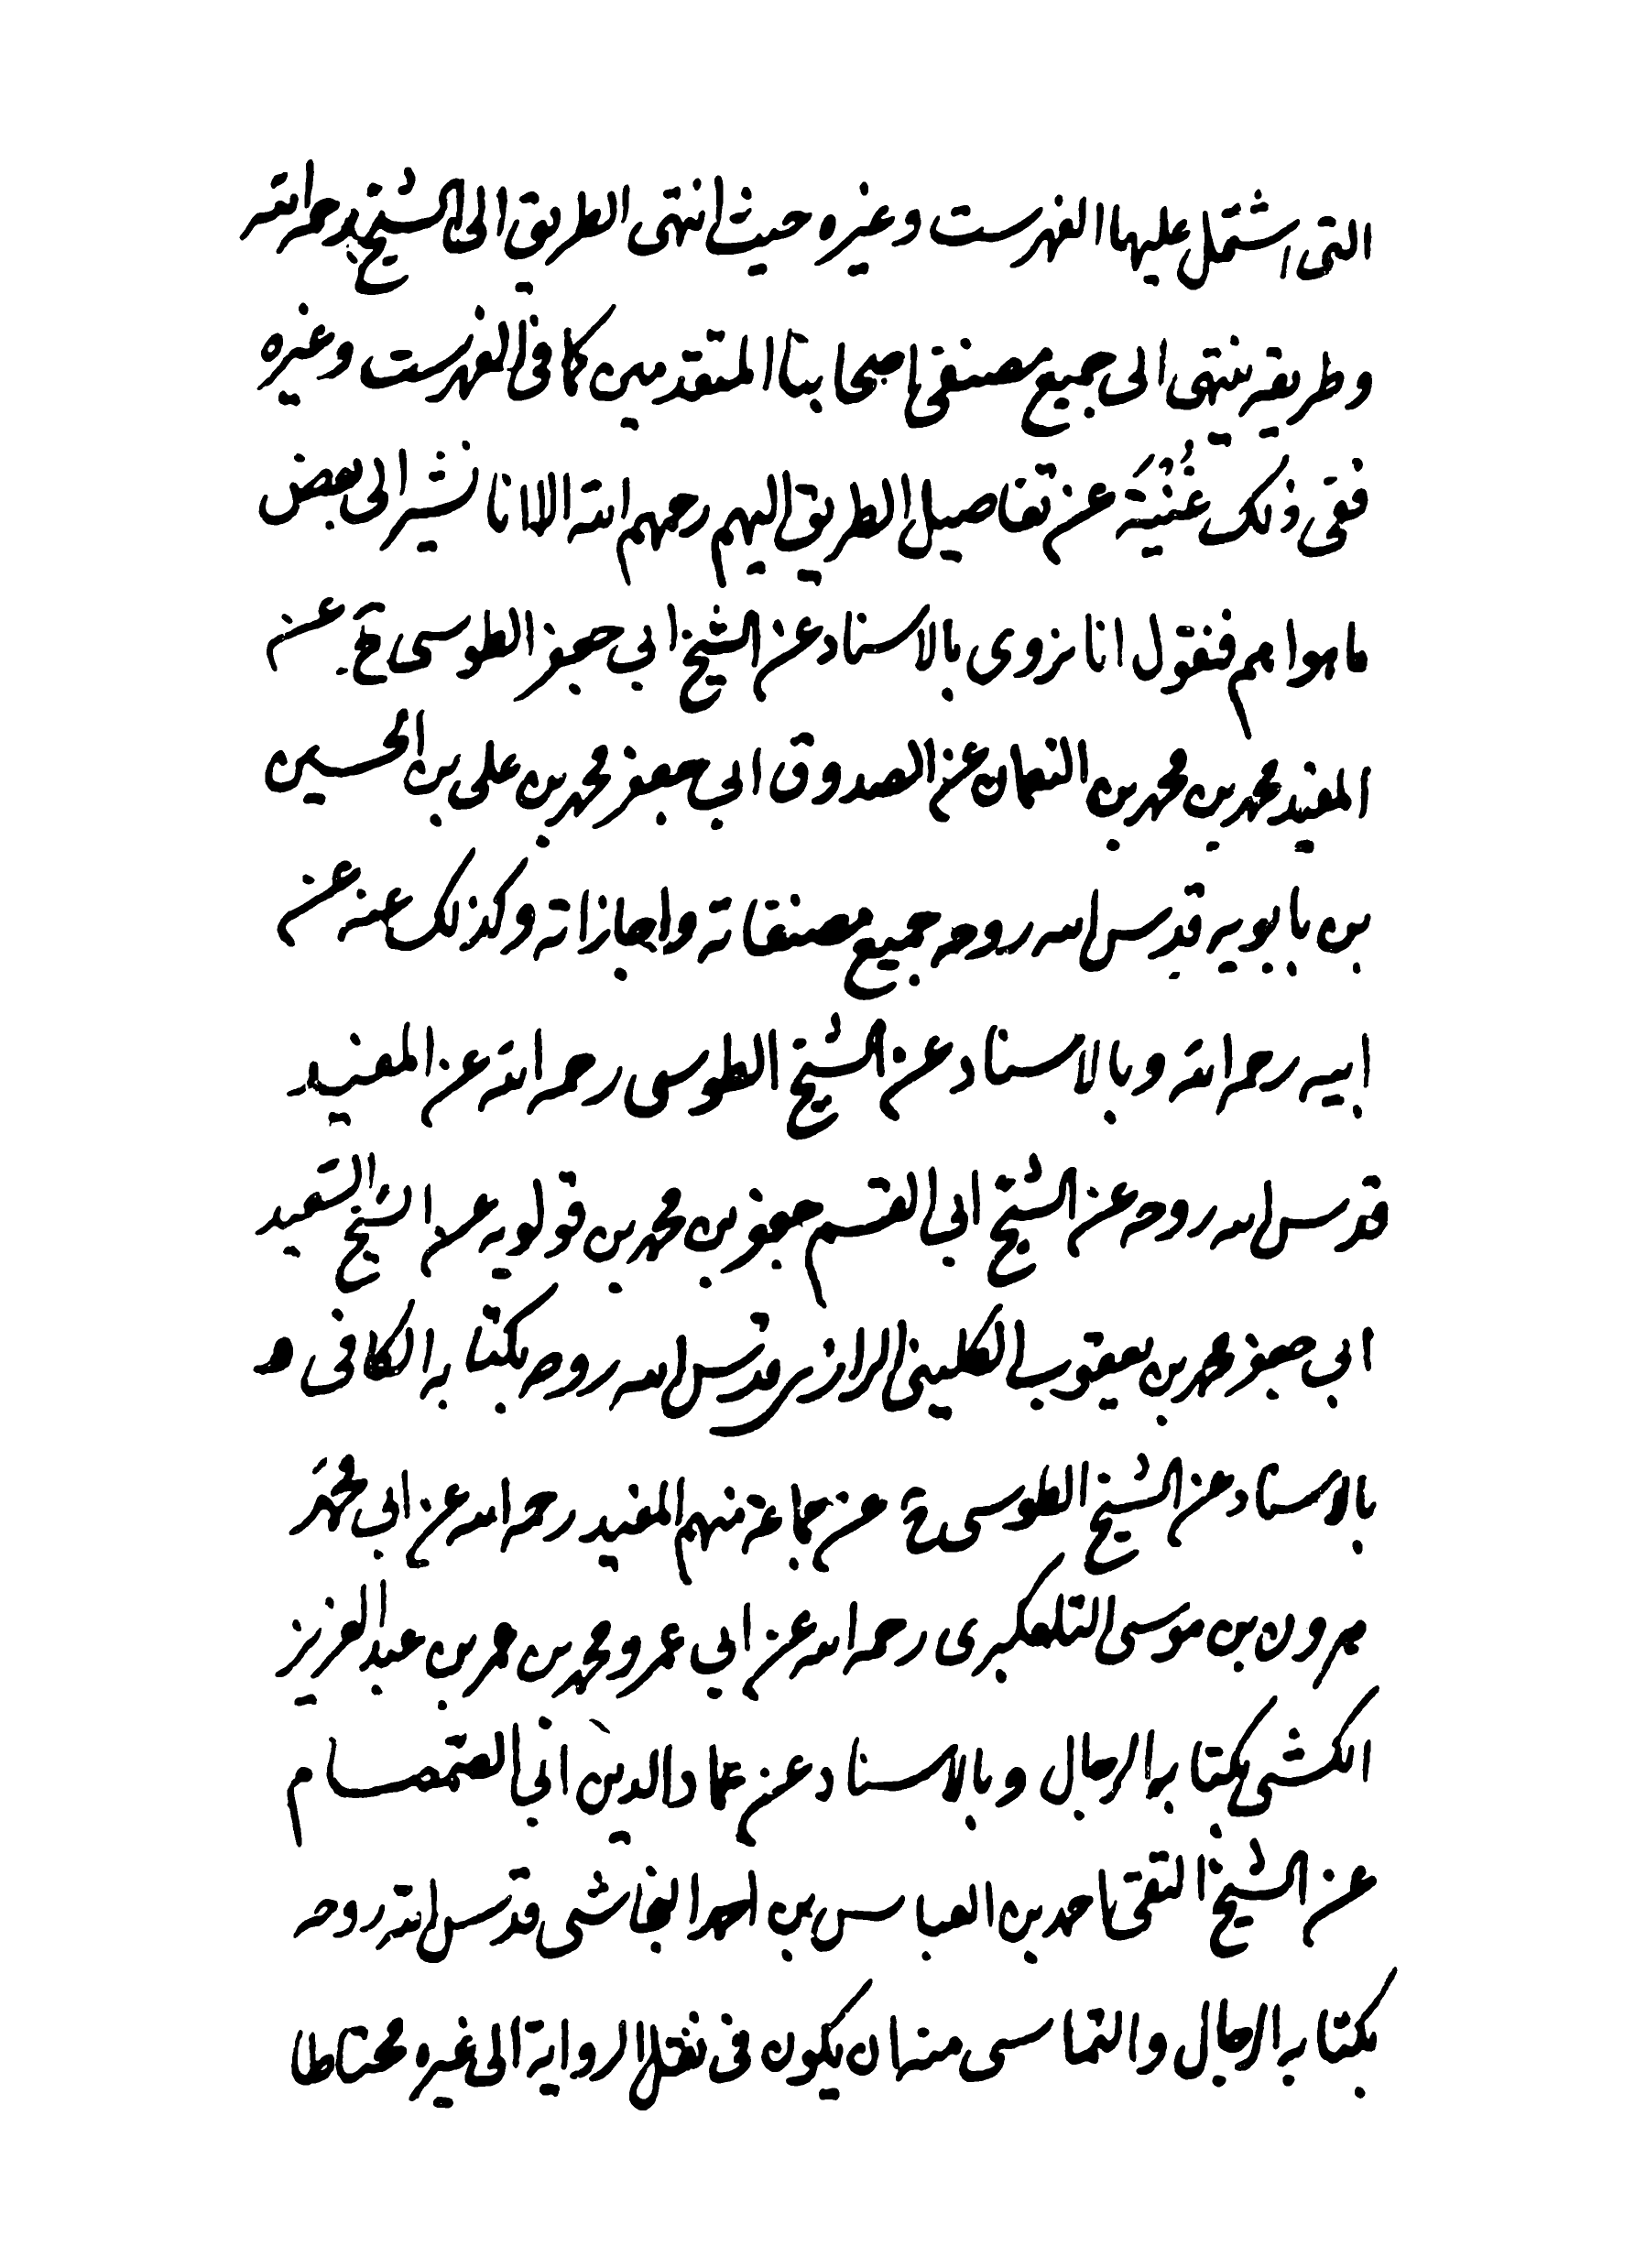 التى اشتمل عليها الفهرست وغيره حيث انتهى الطريق الى الشيخ رحمه الله
وطريقه ينتهى الى جميع مصنفى اصحابنا المتقدمين كما فى الفهرست وغيره
ففى ذلك غُنْيَة عن تفاصيل الطريق اليهم رحمهم الله الا انا نشير الى بعض
ما هو اهم فنقول انا نروى بالاسناد عن الشيخ ابي جعفر الطوسى عن
المفيد محمد بن محمد بن النعمان عن الصدوق ابي جعفر محمد بن على بن الحسين
بن بابويه قدس الله روحه جميع مصنفاته واجازاته وكذلك عنه عن
ابيه رحمه الله وبالاسناد عن الشيخ الطوسى رحمه الله عن المفيد
قدس الله روحه عن الشيخ ابي القسم جعفر بن محمد بن قولويه عن الشيخ السعيد
ابي جعفر محمد بن يعقوب الكلينى الرازى قدس الله روحه بكتابه الكافى و
بالاسناد عن الشيخ الطوسى عن جماعة منهم المفيد رحمه الله عن ابي محمد
هرون بن موسى التلعكبرى رحمه الله عن ابي عمرو محمد بن عمر بن عبد العزيز
الكشى بكتابه الرجال وبالاسناد عن عماد الدين ابي الصمصام
عن الشيخ التقى احمد بن العباس بن احمد النجاشى قدس الله روحه
بكتابه الرجال والتماسى منه ان يكون فى نقل الرواية الى غيره محتاطا